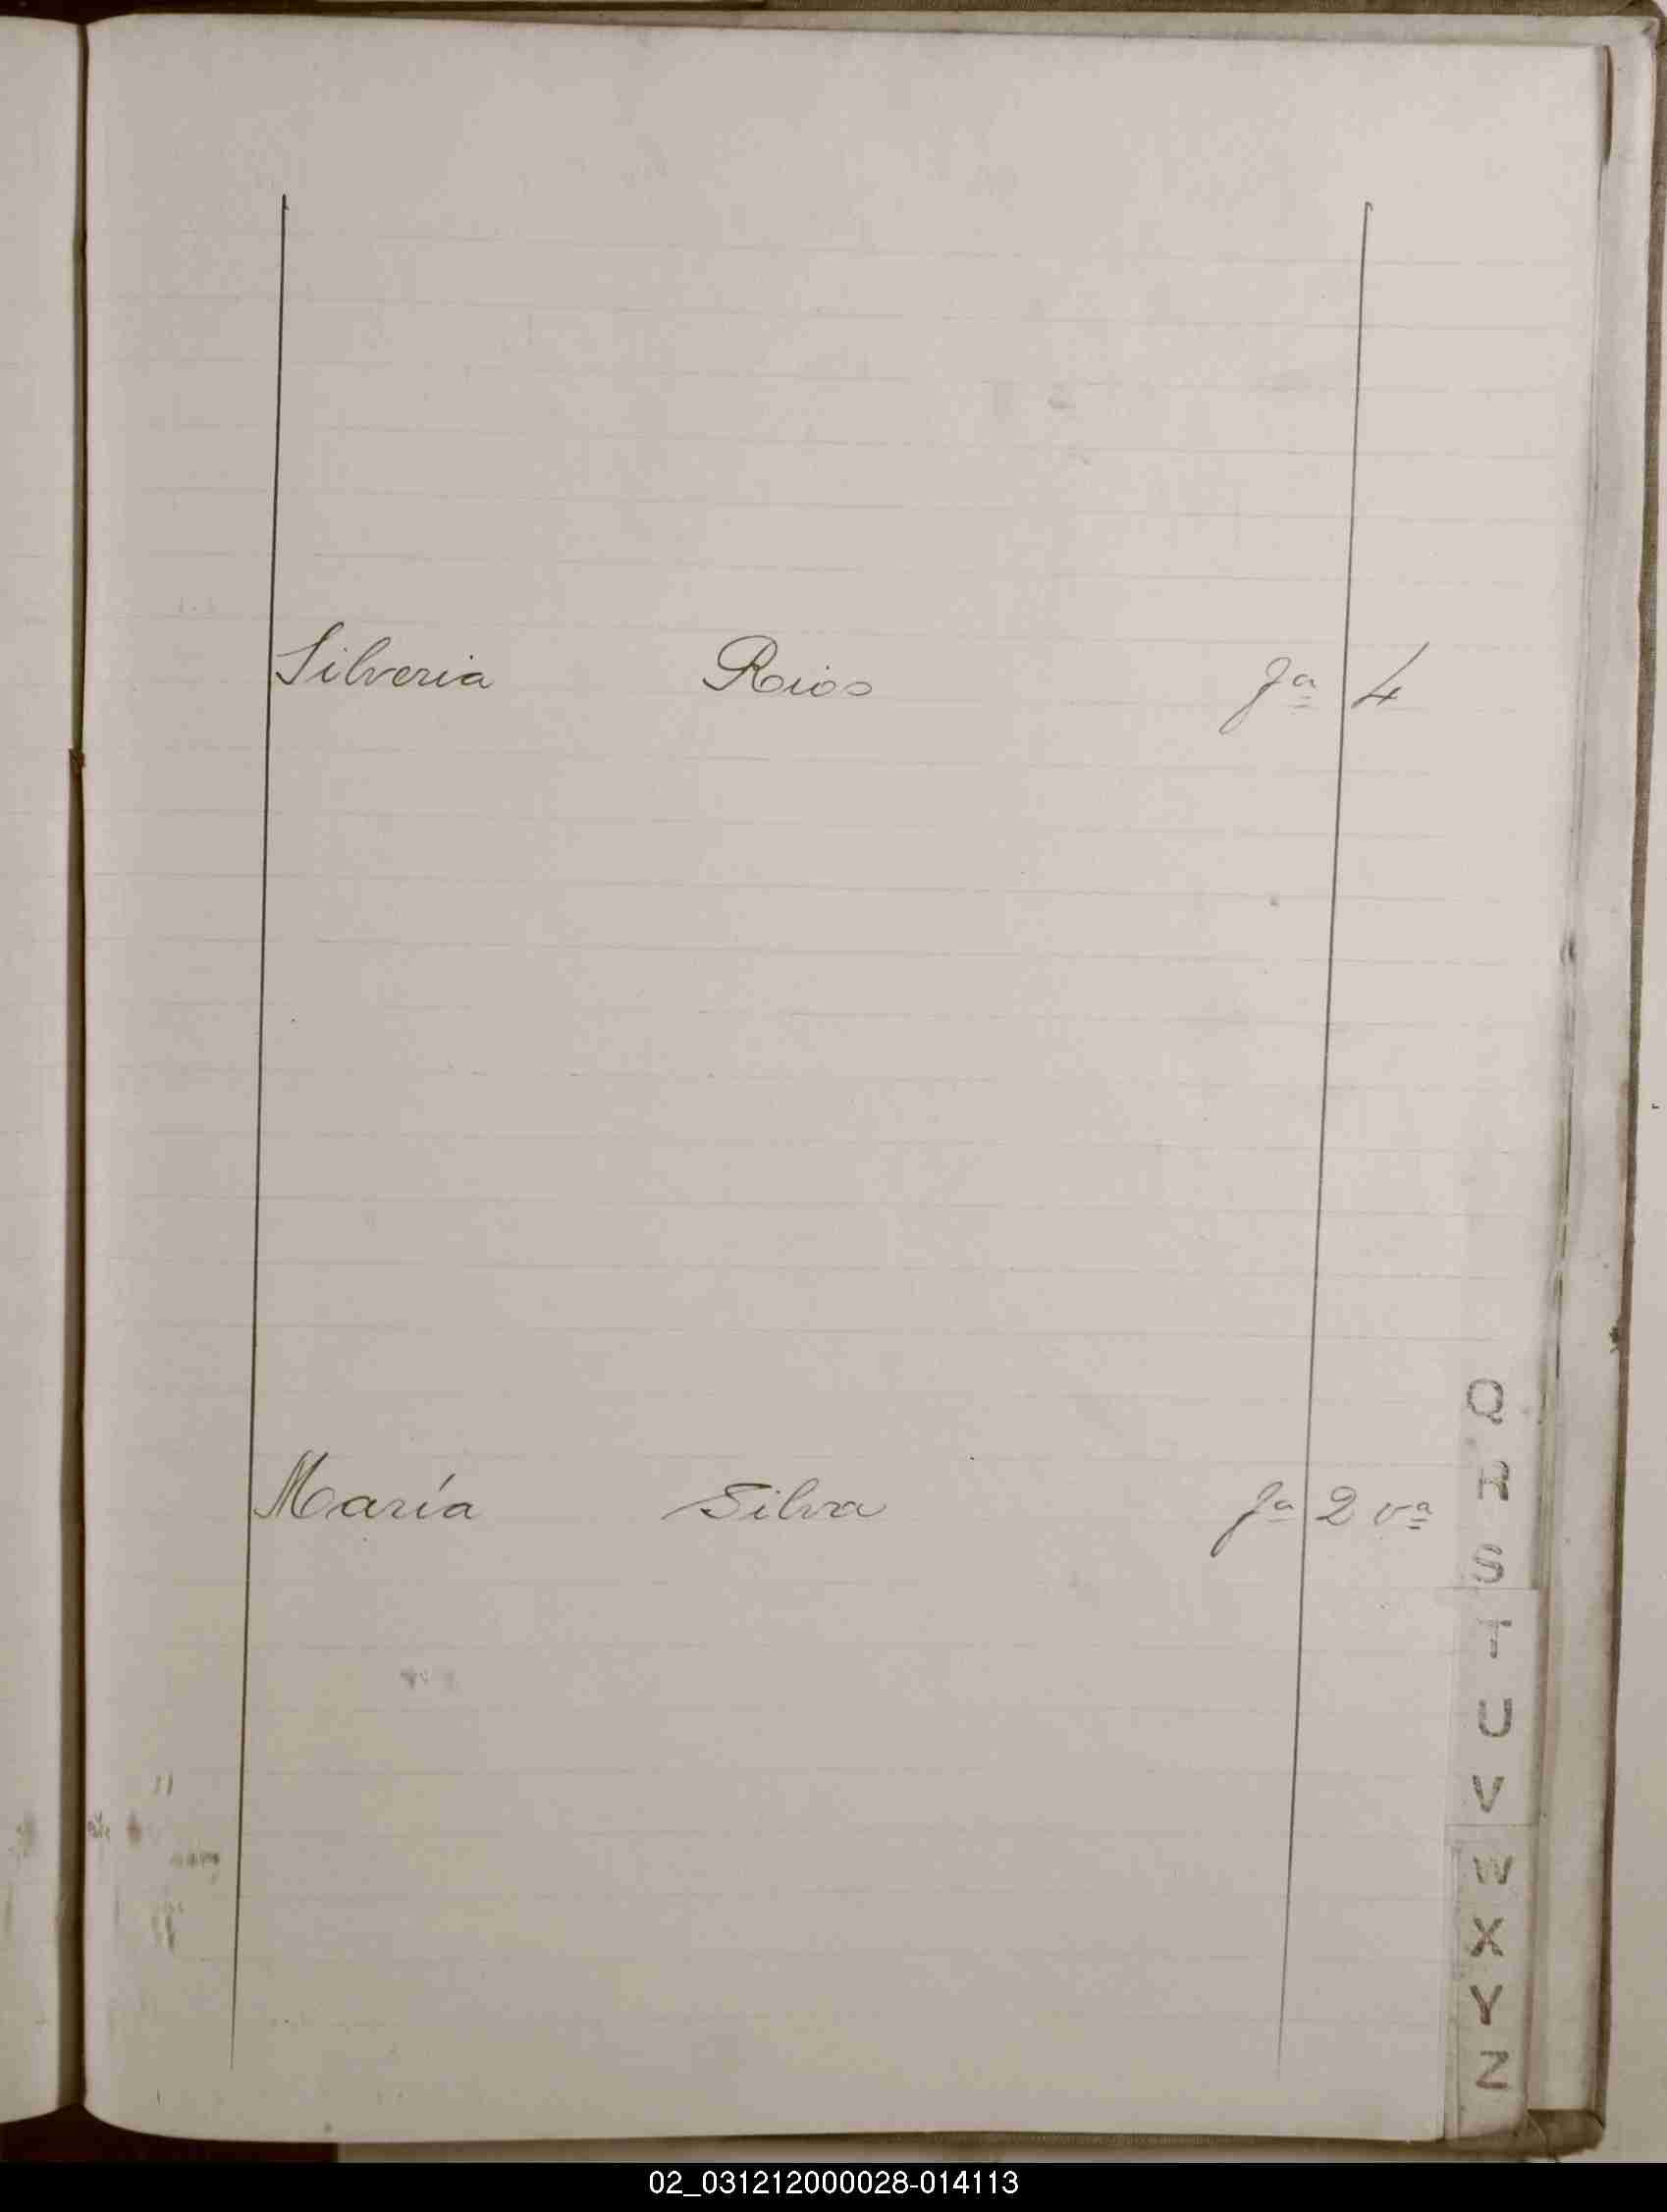 Silveria Rios fª 4
María Silva fª 2 vª
Q
R
S
T
U
V
W
X
Y
Z
02_031212000028-014113